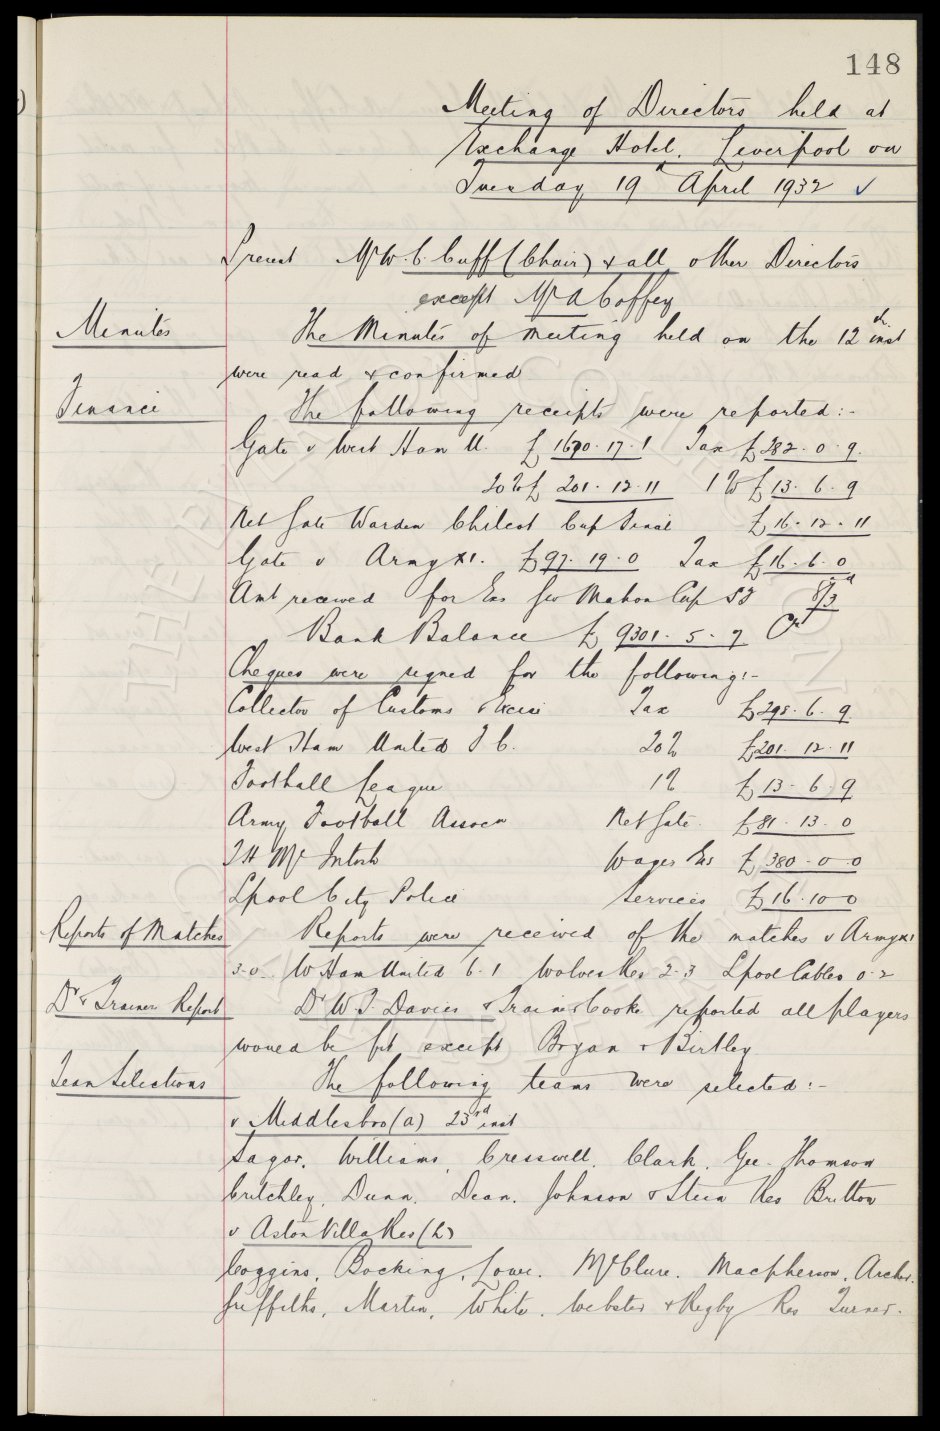 148
Meeting of Directors held at
Exchange Hotel, Liverpool on
Tuesday 19th April 1932
Present Mr W. C. Cuff (Chair) & all other Directors
except Mr A Coffey
Minutes The Minutes of meeting held on the 12th inst
were read & confirmed
Finance The following receipts were reported:-
Gate v West Ham U. £1670.17.1 Tax £282.0.9.
20% £201.12.11 1% £13.6.9
Net Gate Warden Chilcot Cup Final £16.12.11
Gate v Army XI. £97.19.0 Tax £16.6.0
Amt received for Exs Geo Mahon Cup SF 8/3d
Bank Balance £9301.5.7 Cr
Cheques were signed for the following:-
Collector of Customs & Excise Tax £298.6.9
West Ham United F C. 20% £201.12.11
Football League 1% £13.6.9
Army Football Assocn Net Gate £81.13.0
T H McIntosh Wages Exs £380.0.0
Lpool City Police Services £16.10.0
Reports of Matches Reports were received of the matches v Army XI
3-0. W Ham United 6.1 Wolves Res 2-3 Lpool Cables 0.2
Dr & Trainer Report Dr W. J. Davies & Trainer Cooke reported all players
would be fit except Bryan & Birtley
Team Selections The following teams were selected:-
v Middlesbro (a) 23rd inst
Sagar, Williams, Cresswell, Clark, Gee, Thomson
Critchley, Dunn, Dean, Johnson & Stein Res Britton
v Aston Villa Res (h)
Coggins, Bocking, Lowe, McClure, Macpherson, Archer,
Griffiths, Martin, White, Webster & Rigby Res Turner.